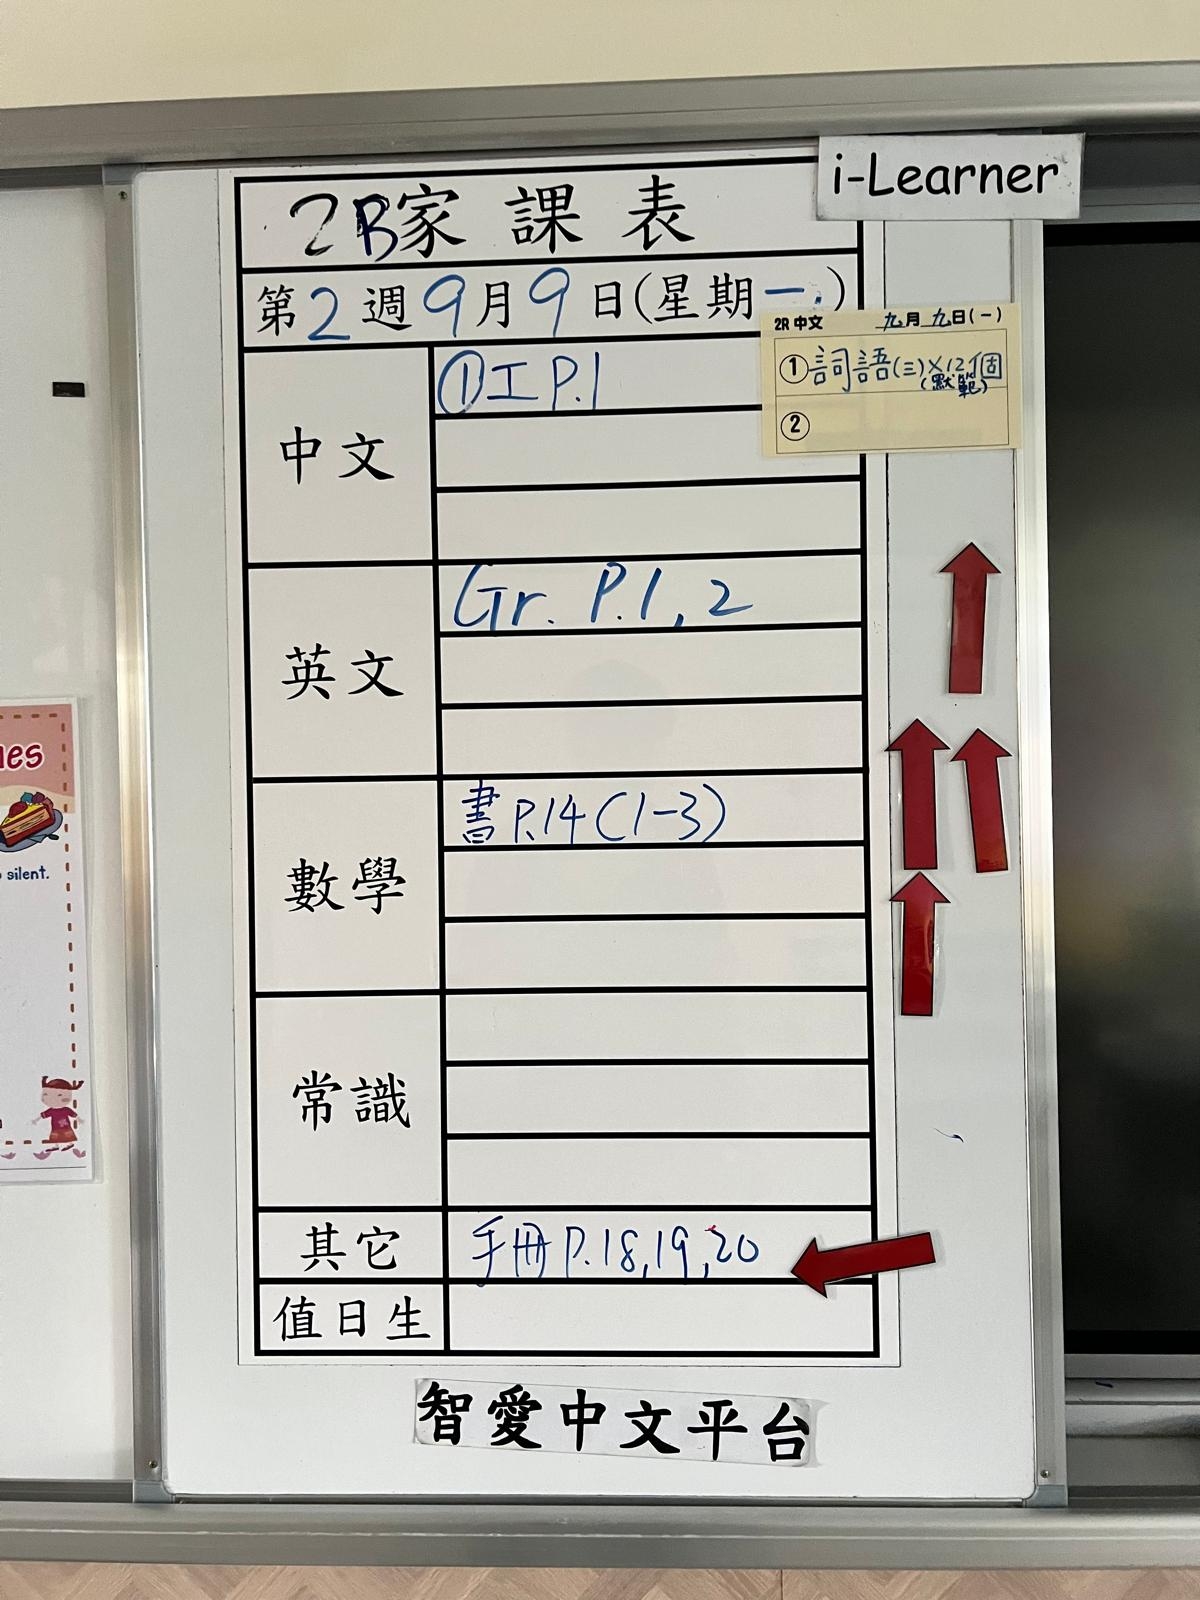 i-Learner
2B家課表
第2週9月9日(星期一)
2R 中文 九月九日(一)
① 詞語(三)×12個
(默範)
②
中文
①工 P.1
英文
Gr. P.1, 2
數學
書 P.14 (1-3)
常識
其它
手冊 P.18,19,20
值日生
智愛中文平台
les
silent.